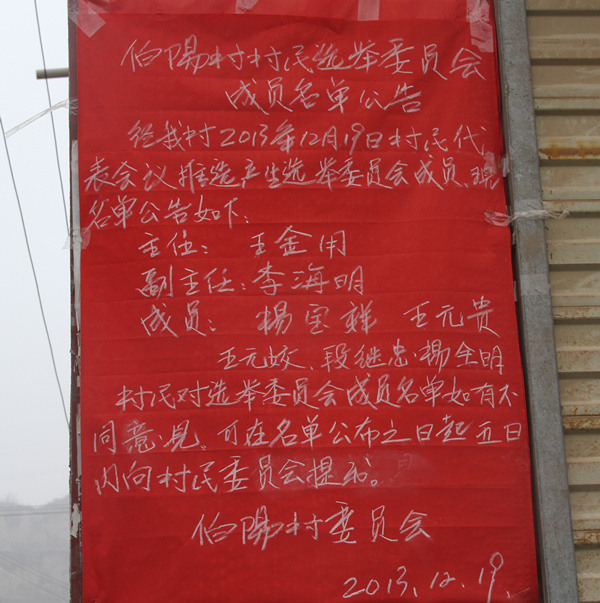 伯陽村村民选举委员会
成员名单公告
经我村2013年12月19日村民代
表会议推选产生选举委员会成员,现
名单公告如下:
主任: 王金用
副主任:李海明
成员: 杨宝祥 王元贵
王元蛟、段继忠、杨全明
村民对选举委员会成员名单如有不
同意见,可在名单公布之日起五日
内向村民委员会提出。
伯陽村委员会
2013.12.19.